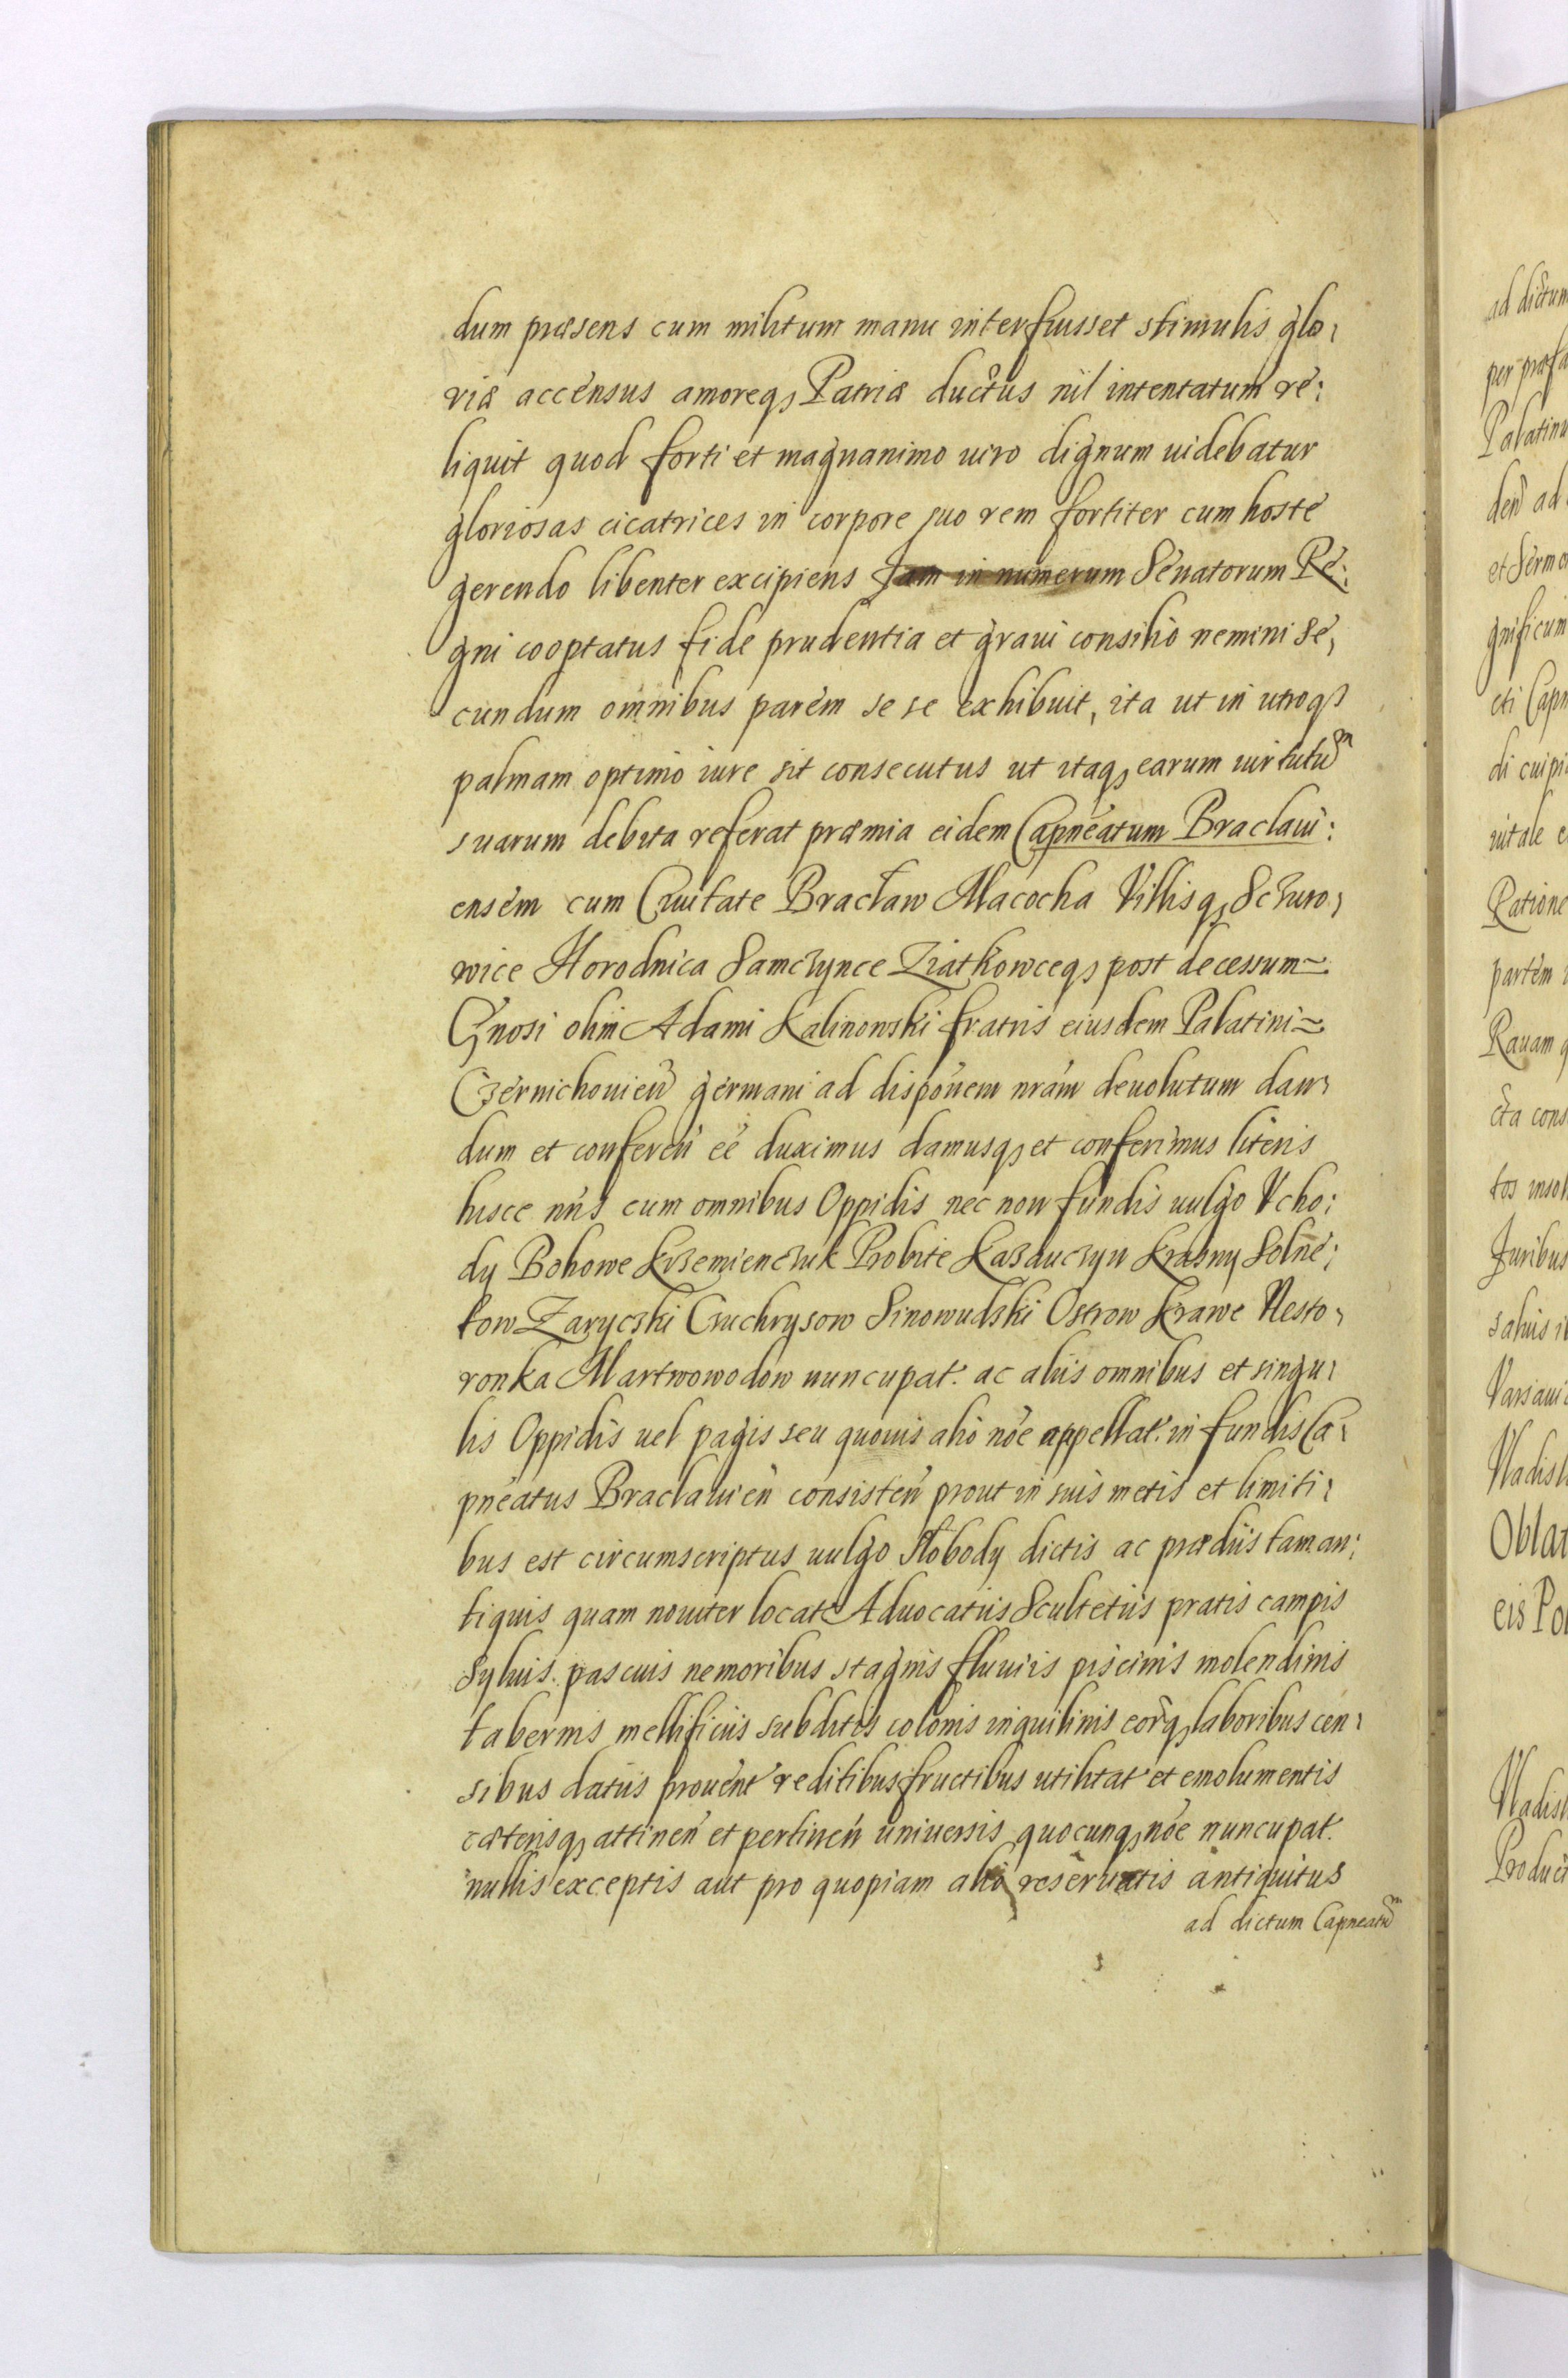 dum præsens cum militum manu interfuisset stimulis glo,
riæ accensus amoreq3 Patriæ ductus nil intentatum re:
liquit quod forti et magnanimo uiro dignum uidebatur
gloriosas cicatrices in corpore suo rem fortiter cum hoste
gerendo libenter excipiens Jam in numerum Senatorum Re:
gni cooptatus fide prudentia et graui consilio nemini se,
cundum omnibus parem se se exhibuit, ita ut in utroq3
palmam optimo iure sit consecutus ut itaq3 earum uirtutũm
suarum debita referat præmia eidem Capneatum Braclaui:
ensem cum Ciuitate Bracław Macocha Villisq3 Sczuro,
wice Horodnica Samczynce Ziatkowceq3 post decessum
Gnosi olim Adami Kalinowski fratris eiusdem Palatini
Czernichouieñ germani ad disponem nram deuolutum dan,
dum et confereñ eé duximus damusq3 et conferimus literis
hisce nris cum omnibus Oppidis nec non fundis uulgo Vcho:
dy Bohowe Krzemienczuk Probite Kazauczyn Krasny Solne:
kow Zaryczki Czuchrysow Sinowudzki Ostrow Krawe Nesto,
ronka Martwowodow nuncupat. ac aliis omnibus et singu,
lis Oppidis uel pagis seu quouis alio nõe appellat. in fundis Ca,
pneatus Braclauieñ consisteñ prout in suis metis et limiti,
bus est circumscriptus uulgo Słobody dictis ac prædiis tam an:
tiquis quam nouiter locat. Aduocatiis Scultetiis pratis campis
Syluis pascuis nemoribus stagnis fluuiis piscinis molendinis
tabernis mellificiis subditis colonis inquilinis eorq3 laboribus cen,
sibus datiis prouent reditibus fructibus utilitat et emolumentis
cæterisq3 attineñ et pertineñ uniuersis quocunq3 nõe nuncupat.
nullis exceptis aut pro quopiam alio reseruatis antiquitus
ad dictum Capneatũm
ad dictum
per præfa
Palatinu
deñ ad
et Sermo
gnificum
eti Capn
di cuipi
uitale e
Ratione
partem
Rauam q
cta cons
tos insol
Juribus
saluis i
Varsaui
Vladisl
Oblat
eis Po
Vladisl
Product